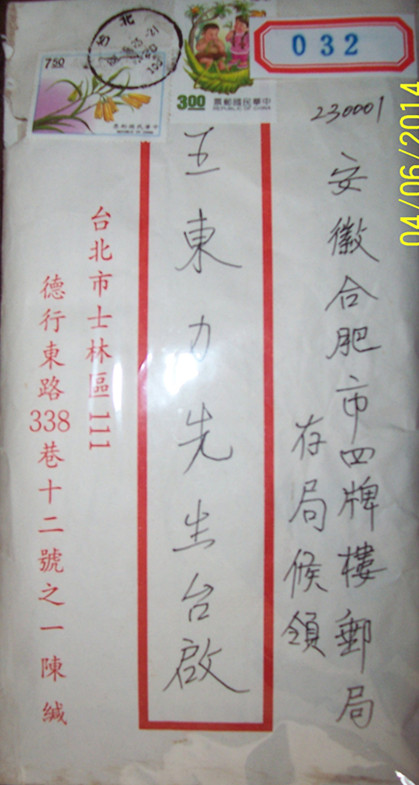 台北
750
中華民國郵票
REPUBLIC OF CHINA
3.00
中華民國郵票
REPUBLIC OF CHINA
032
230001
安徽合肥市四牌樓郵局
存局候領
王東力先生台啟
台北市士林區111
德行東路338巷十二號之一陳緘
04/06/2014